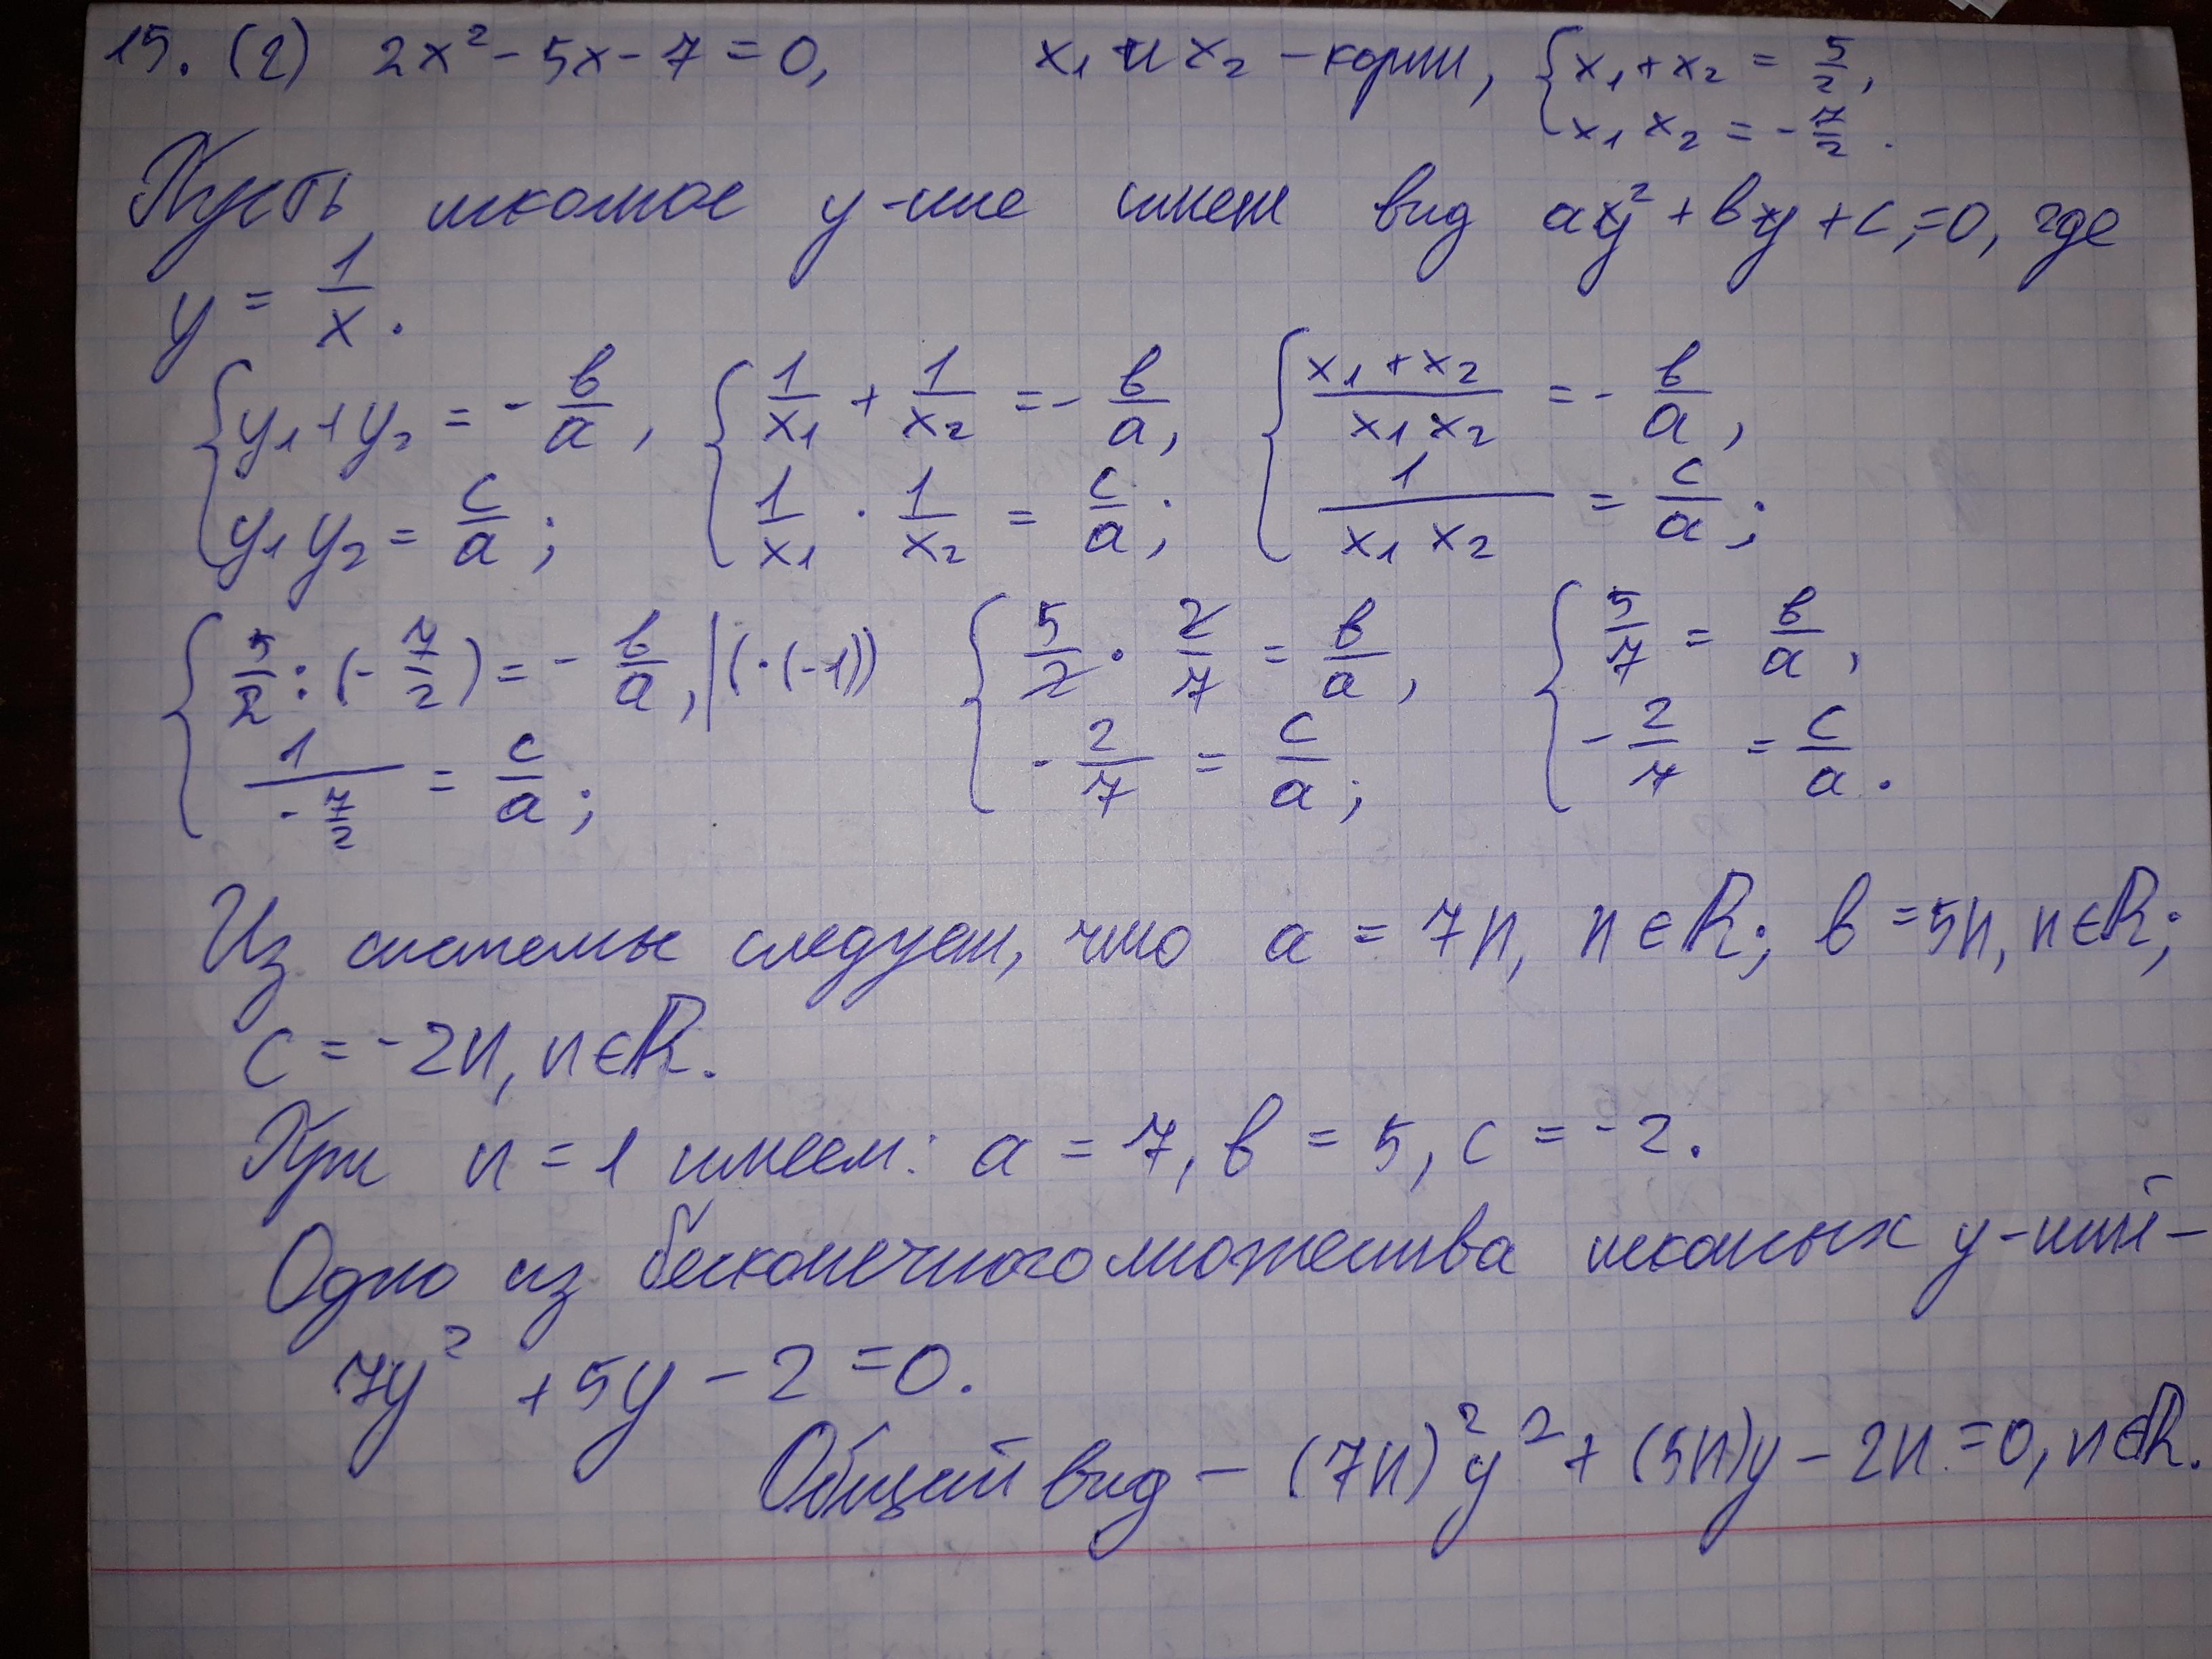 15. (2) 2x² - 5x - 7 = 0, x₁ и x₂ - корни, { x₁ + x₂ = 5/2, x₁ x₂ = -7/2.
Пусть искомое у-ние имеет вид ay² + by + c = 0, где
y = 1/x.
{ y₁ + y₂ = - b/a, y₁ y₂ = c/a; { 1/x₁ + 1/x₂ = - b/a, 1/x₁ · 1/x₂ = c/a; { (x₁ + x₂)/(x₁ x₂) = - b/a, 1/(x₁ x₂) = c/a;
{ 5/2 : (- 7/2) = - b/a, |(·(-1)) 1/(- 7/2) = c/a; { 5/2 · 2/7 = b/a, - 2/7 = c/a; { 5/7 = b/a, - 2/7 = c/a.
Из системы следует, что a = 7n, n ∈ ℝ; b = 5n, n ∈ ℝ;
c = -2n, n ∈ ℝ.
При n = 1 имеем: a = 7, b = 5, c = -2.
Одно из бесконечного множества искомых у-ний -
7y² + 5y - 2 = 0.
Общий вид - (7n)²y² + (5n)y - 2n = 0, n ∈ ℝ.